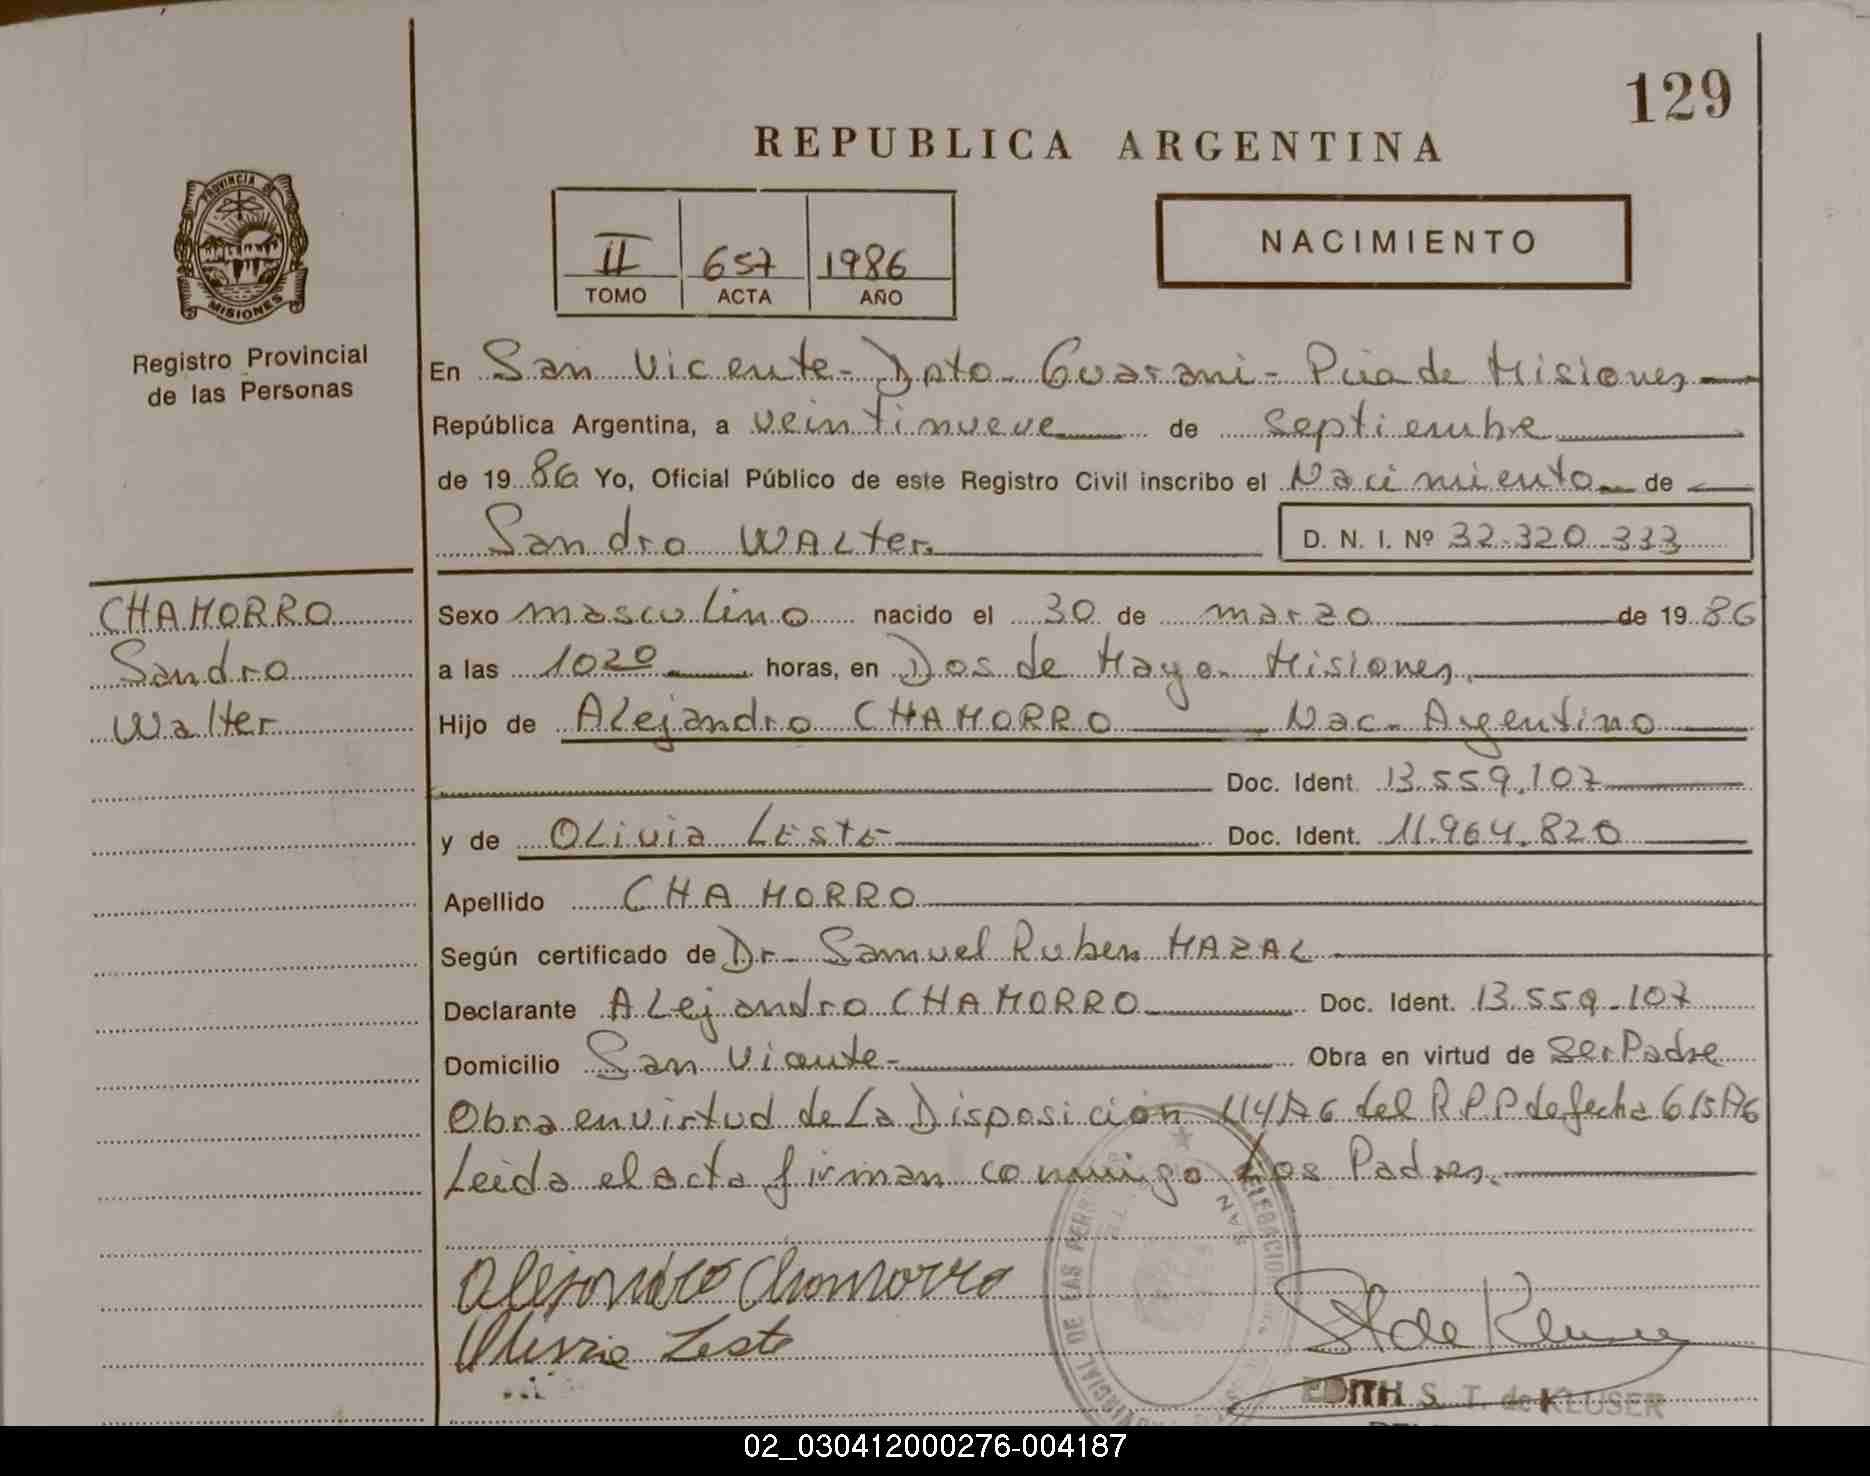 129
REPUBLICA ARGENTINA
PROVINCIA DE
MISIONES
Registro Provincial
de las Personas
II 657 1986
TOMO ACTA AÑO
NACIMIENTO
En San Vicente - Dpto. Guarani - Pcia de Misiones
República Argentina, a veintinueve de septiembre
de 1986 Yo, Oficial Público de este Registro Civil inscribo el Nacimiento de
Sandro WALter D. N. I. Nº 32.320.333
CHAMORRO
Sandro
Walter
Sexo masculino nacido el 30 de marzo de 1986
a las 1020 horas, en Dos de Mayo - Misiones.
Hijo de Alejandro CHAMORRO Nac. Argentino
Doc. Ident. 13.559.107
y de OLivia LESTE Doc. Ident. 11.964.820
Apellido CHAMORRO
Según certificado de Dr. Samuel Ruben MAZAL
Declarante ALejandro CHAMORRO Doc. Ident. 13.559.107
Domicilio San Vicente - Obra en virtud de Ser Padre
Obra en virtud de La Disposición del R.P.P de fecha
Leida el acta firman conmigo Los Padres.
Alejandro Chamorro
Olivia Leste
St de Kluser
EDITH S. T. de KLUSER
02_030412000276-004187